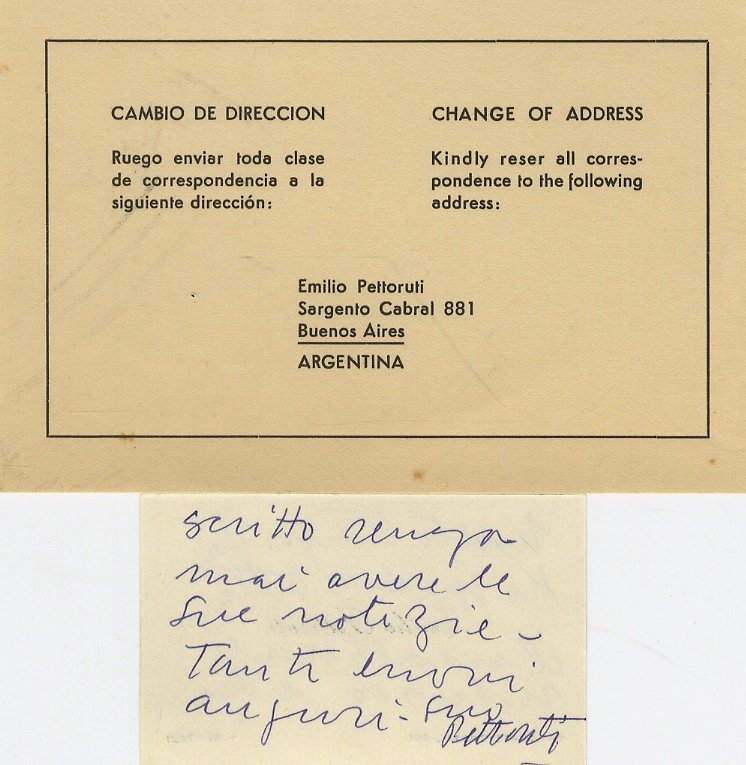 CAMBIO DE DIRECCION
Ruego enviar toda clase
de correspondencia a la
siguiente dirección:
CHANGE OF ADDRESS
Kindly reser all corres-
pondence to the following
address:
Emilio Pettoruti
Sargento Cabral 881
Buenos Aires
ARGENTINA
scritto senza
mai avere le
sue notizie -
Tanti buoni
auguri - suo
Pettoruti